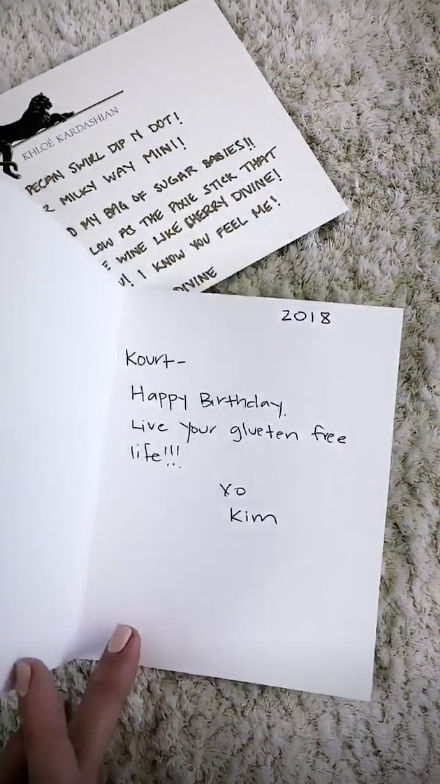 KHLOÉ KARDASHIAN
PECAN SWIRL DIP N DOT!
2 MILKY WAY MINI!
MY BAG OF SUGAR BABIES!!
LOW AS THE PIXIE STICK THAT
WINE LIKE CHERRY DIVINE!
! I KNOW YOU FEEL ME!
DIVINE
2018
Kourt-
Happy Birthday.
Live your glueten free
life!!!
XO
Kim